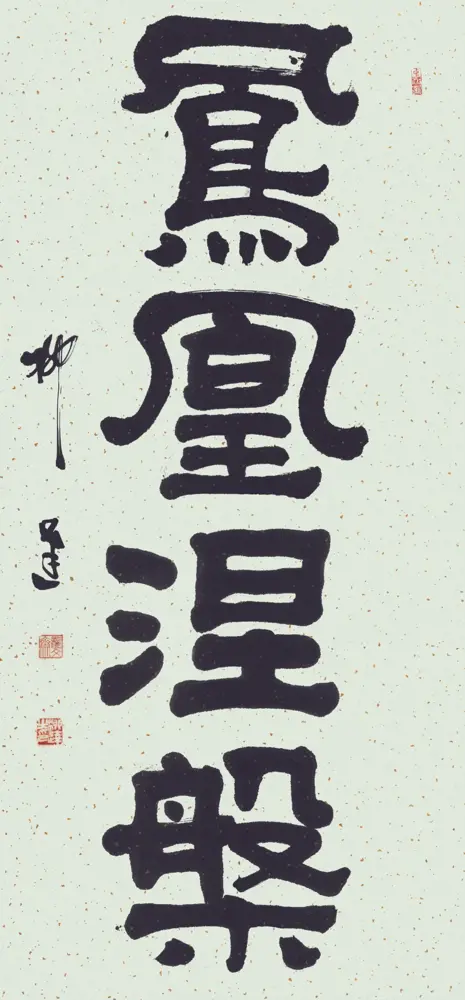 鳳凰涅槃